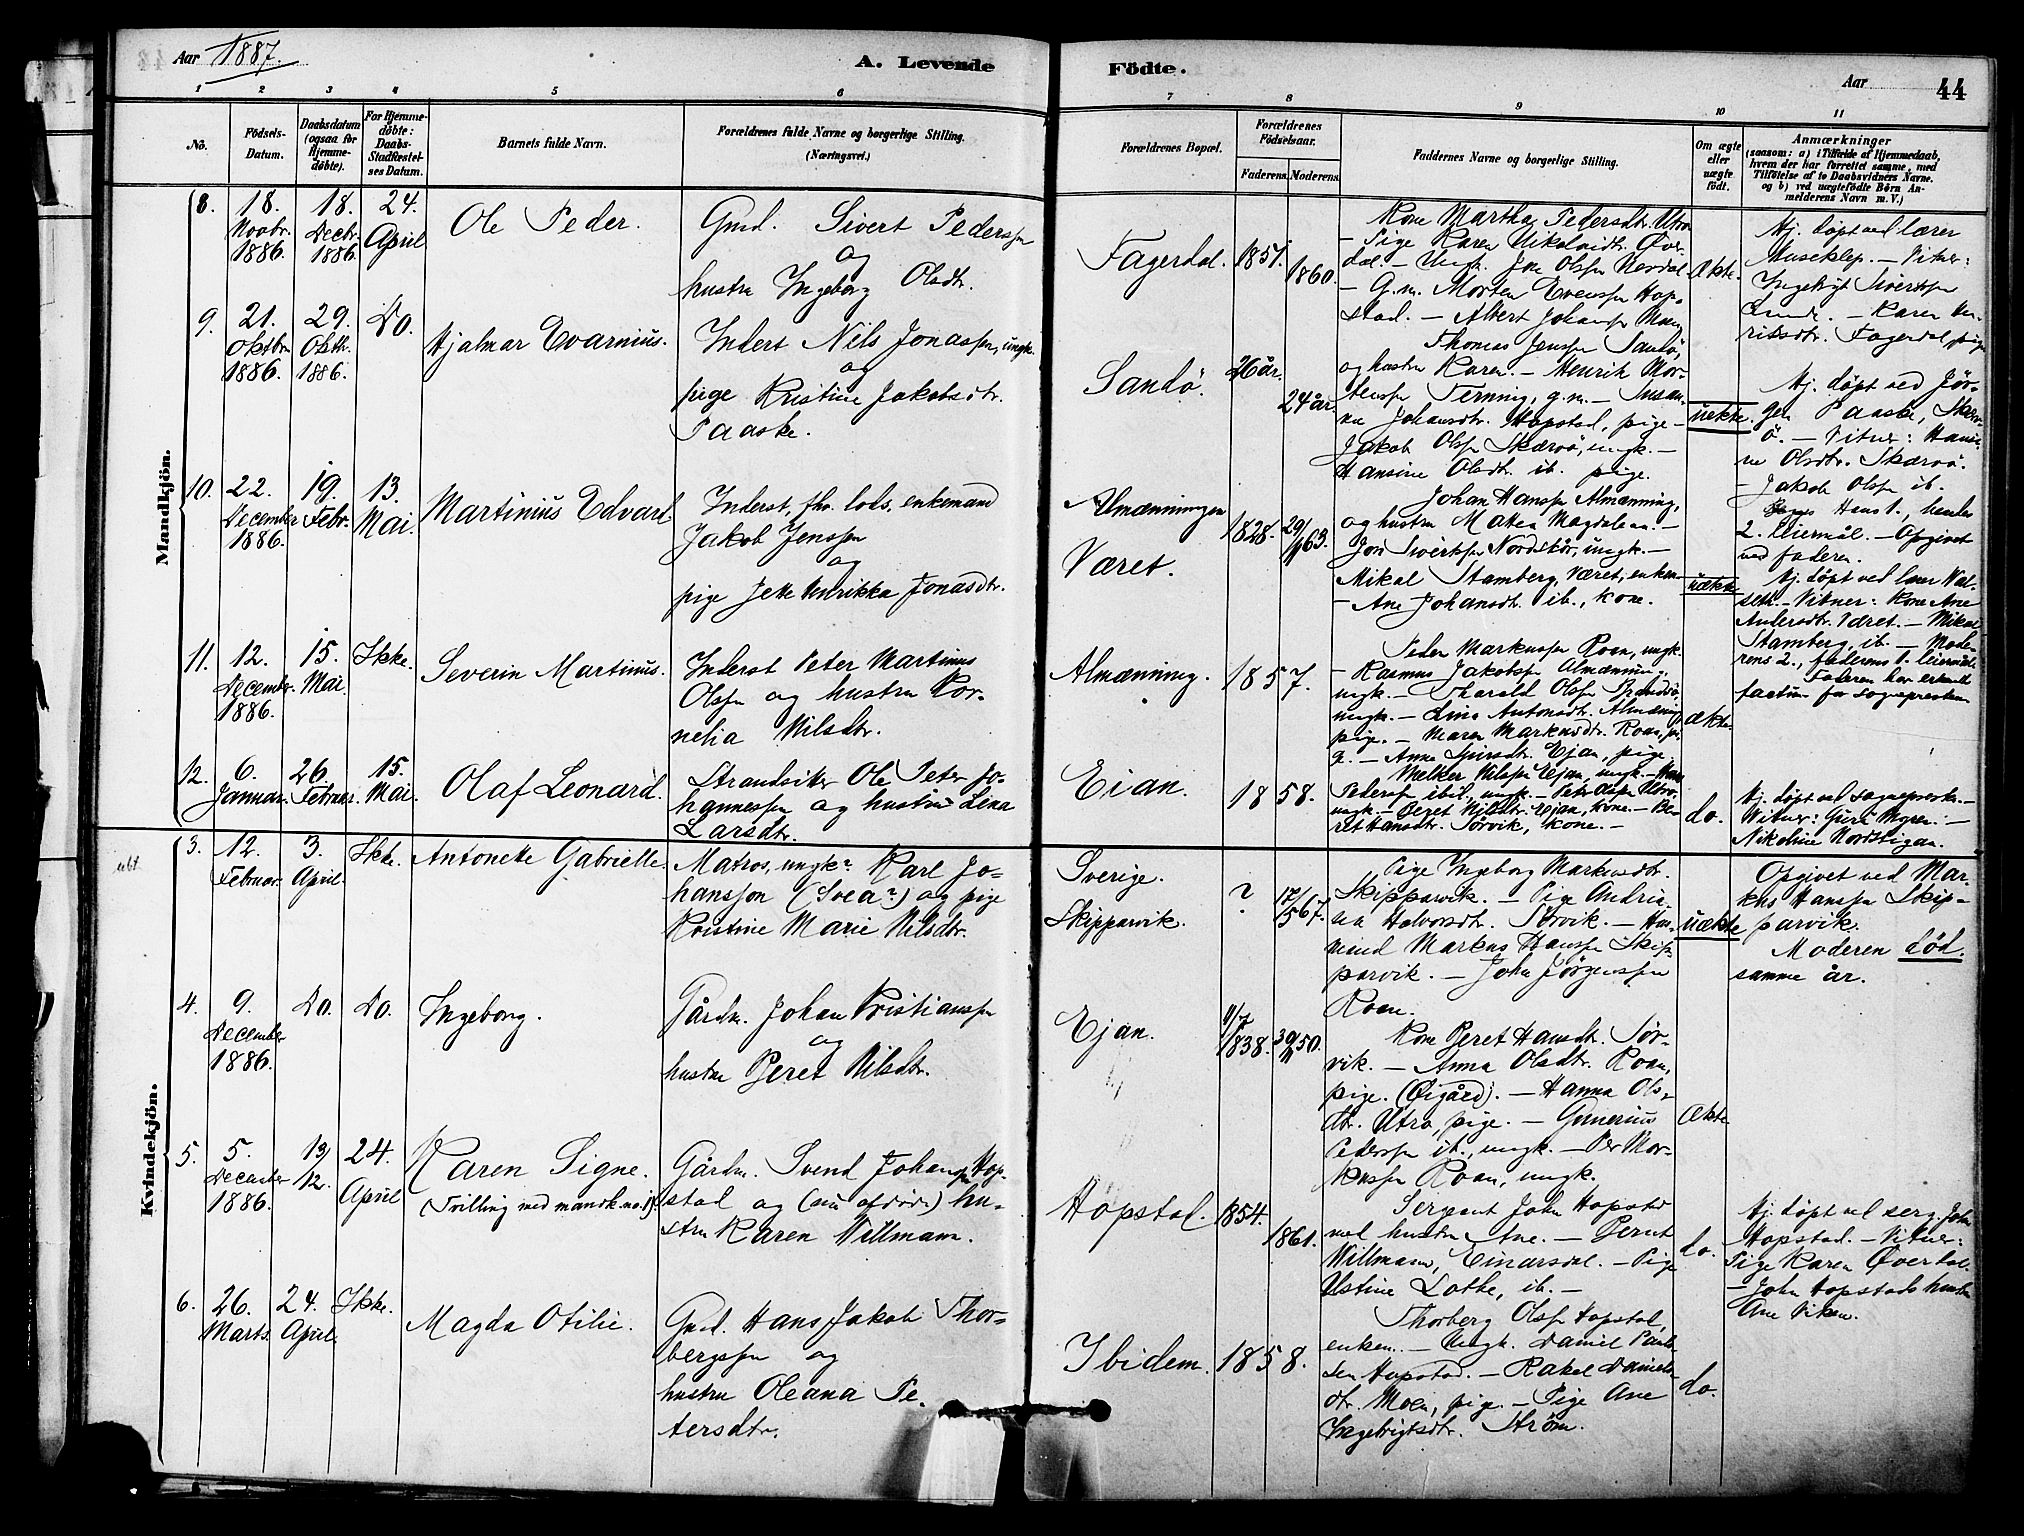 Aar 1887.
A. Levende
Födte.
Aar
44
1 2 3 4 5 6 7 8 9 10 11
No.
Födsels-
Datum.
Daabsdatum
(ogsaa for
Hjemme-
døbte).
For Hjemme-
døbte:
Daabs-
Stadfæstel-
ses Datum.
Barnets fulde Navn.
Forældrenes fulde Navne og borgerlige Stilling.
(Næringsvei.)
Forældrenes Bopæl.
Forældrenes
Födselsaar.
Faderens. Moderens.
Faddernes Navne og borgerlige Stilling.
Om ægte
eller
uægte
födt.
Anmærkninger
(saasom: a) i Tilfælde af Hjemmedaab,
hvem der har forrettet samme, med
Tilföielse af to Daabsvidners Navne.
og b) ved uægtefödte Börn An-
melderens Navn m.V.)
Mandkjön.
8.
18.
Novbr.
1886.
18.
Decbr.
1886.
24.
April
Ole Peder.
Gmd. Sivert Pederssen
og
hustru Ingeborg Olsdtr.
Fagerdal.
1851.
1860.
Kone Martha Pedersdtr. Utro
– Pige Karen Nikolaidtr. Øver-
dal. – Ungk. Jon Olssen Nordal
– G.m. Morten Evenssen Hop-
stad. – Albert Johanssen Moen
Ækte.
Hj. døpt ved lærer
Museklep. – Vitner:
Ingebrigt Sivertssen
Lund. – Karen Hen-
riksdtr. Fagerdal, pige
9.
21.
Oktbr.
1886.
29.
Oktb.
1886.
Do.
Hjalmar Evarnius.
Inderst Nils Jonassen, ungk.
og
pige Kristine Jakobsdtr.
Paaske.
Sandö.
26 år.
24 år.
Thomas Jenssen Sandö,
og hustru Karen. – Henrik Mor-
tenssen Terning, g.m. – Susan-
na Johansdtr. Hopstad, pige –
Jakob Olssen Skærvö, ungk. –
Hansine Olsdtr. ib. pige.
uækte.
Hj. døpt ved Jör-
gen Paaske, Skærv-
ö. – Vitner: Hansi-
ne Olsdtr. Skærvö.
– Jakob Olssen ib.
Hans 1., hendes
2. leiermål. – Opgivet
ved faderen.
10.
22.
December
1886.
19.
Febr.
13.
Mai.
Martinius Edvard.
Inderst, fhv. lods, enkemand
Jakob Jenssen
og
pige Jette Henrikka Jonasdtr.
Almænningen
Været.
1828.
29/1 63.
Johan Hanssen Almænning,
og hustru Matea Magdalena. –
Jon Sivertssen Nordskör, ungk. –
Mikal Stamberg, Været, enkem.
– Ane Johansdtr. ib., kone.
uækte
Hj. døpt ved lærer Wal-
seth. – Vitner: Kone Ane
Andersdtr. Været. – Mikal
Stamberg, ib. – Mode-
rens 2., faderens 1. leiermål.
Faderen har erkendt
factum for sognepresten
11.
12.
December
1886.
15.
Mai.
Ikke.
Severin Martinus.
Inderst Peter Martinus
Olssen og hustru Kor-
nelia Nilsdtr.
Almænning.
1857.
Peder Markussen Roan, ungk.
– Rasmus Jakobssen Almænning,
ungk. – Tharald Olssen Brandsö,
ungk. – Lina Antonsdtr. Almænning,
pige. – Maren Markusdtr. Roan, pi-
ge. – Anna Ejan, pige.
ækte.
12.
6.
Januar.
26.
Februar.
15.
Mai.
Olaf Leonard.
Strandsitter Ole Peter Jo-
hannessen og hustru Lina
Larsdtr.
Eian.
1858.
Melker Nilssen Ejan, ungk. – Hans
Pederssen ibid., ungk. – Petr. Olssen Utro,
ungk. – Beret Nilsdtr. Ejan, kone. – Be-
ret Hansdtr. Sörvik, kone. –
do.
Hj. døpt ved sogneprest. –
Vitner: Guri Moren. –
Nikoline Nordstigan.
Kvindekjön.
3.
12.
Februar.
3.
April.
Ikke.
Antonette Gabrielle.
Matros, ungk? Karl Jo-
hansson (Svea?) og pige
Kristine Marie Nilsdtr.
Sverige.
Skipparvik.
?
17/5 67.
Pige Ingeborg Markusdtr.
Skipparvik. – Pige Andria-
sea Halvorsdtr. Sörvik. – Hus-
mand Markus Hanssen Skip-
parvik. – John Jörgenssen
Roan.
uækte
Opgivet ved Mar-
kus Hanssen Skip-
parvik.
Moderen død
samme år.
4.
9.
December
1886.
Do.
Do.
Ingeborg.
Gårdm. Johan Kristianssen
og
hustru Beret Nilsdtr.
Ejan.
11/7 1838.
30/11 50.
Kone Beret Hansdtr. Sör-
vik. – Anna Olsdtr. Roan,
pige. (Øigård). – Hanna Ols-
dtr. Utro, pige. – Gunerius
Pederssen ib., ungk. – Per Mar-
kussen Roan, ungk.
Ækte
5.
5.
December
1886.
13/12.
24.
April
Karen Signe.
(Tvilling med mandk. no. 1).
Gårdm. Svend Johanssen Hop-
stad og (nu afdøde) hu-
stru Karen Willmann.
Hopstad.
1854.
1861.
Sergeant John Hopstad
med hustru Ane. – Bernt
Willmann, Einarsdal. – Pige
Ustine Lothe, ib. –
do.
Hj. døpt ved serg. John
Hopstad. – Vitner:
Pige Karen Øverdal.
– John Hopstads hustru
Ane Viken.
6.
26.
Marts.
24.
April.
Ikke.
Magda Otilie.
Gmd. Hans Jakob Thor-
bergssen og
hustru Oleana Pe-
tersdtr.
Ibidem.
1858.
Thorberg Olssen Hopstad,
enkem. – Ungk. Daniel Pauls-
sen Hopstad. – Rakel Daniels-
dtr. Moen, pige. – Pige Ane
Ingebrigtsdtr. Ström.
do.